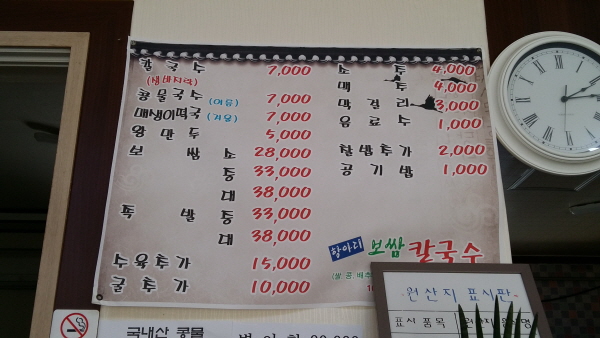 칼국수 7,000
(생바지락)
콩물국수 (여름) 7,000
매생이떡국 (겨울) 7,000
왕만두 5,000
보쌈 소 28,000
중 33,000
대 38,000
족발 중 33,000
대 38,000
수육추가 15,000
굴추가 10,000
소주 4,000
맥주 4,000
막걸리 3,000
음료수 1,000
찰밥추가 2,000
공기밥 1,000
항아리 보쌈 칼국수
(쌀,콩,배추
원산지 표시판
표시 품목
국내산 콩물